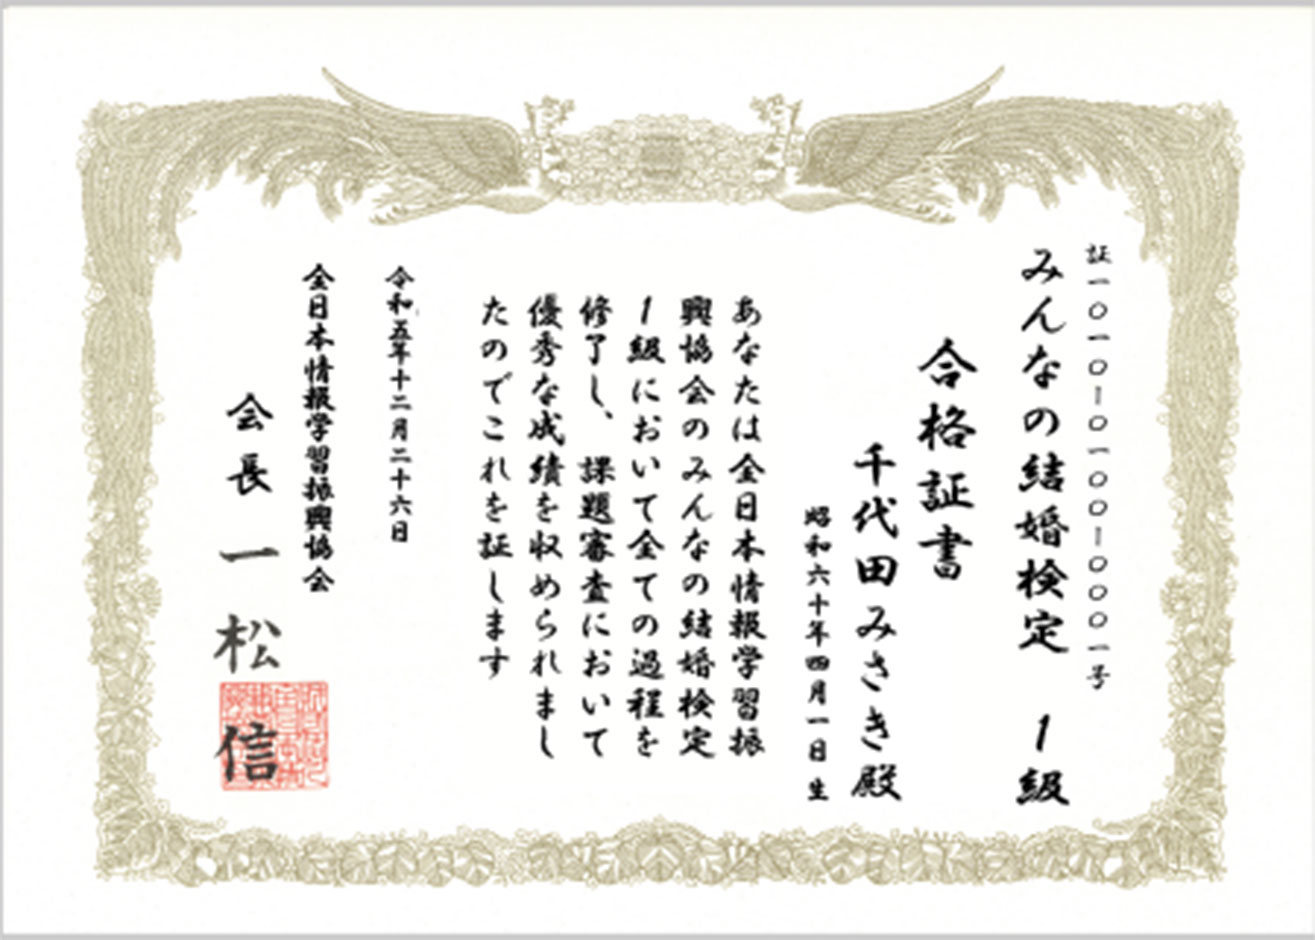 証一〇一〇|〇一〇〇|〇〇〇一号
みんなの結婚検定 1級
合格証書
千代田みさき殿
昭和六十年四月一日生
あなたは全日本情報学習振
興協会のみんなの結婚検定
1級において全ての過程を
修了し、課題審査において
優秀な成績を収められまし
たのでこれを証します
令和五年十二月二十六日
全日本情報学習振興協会
会長 一松 信